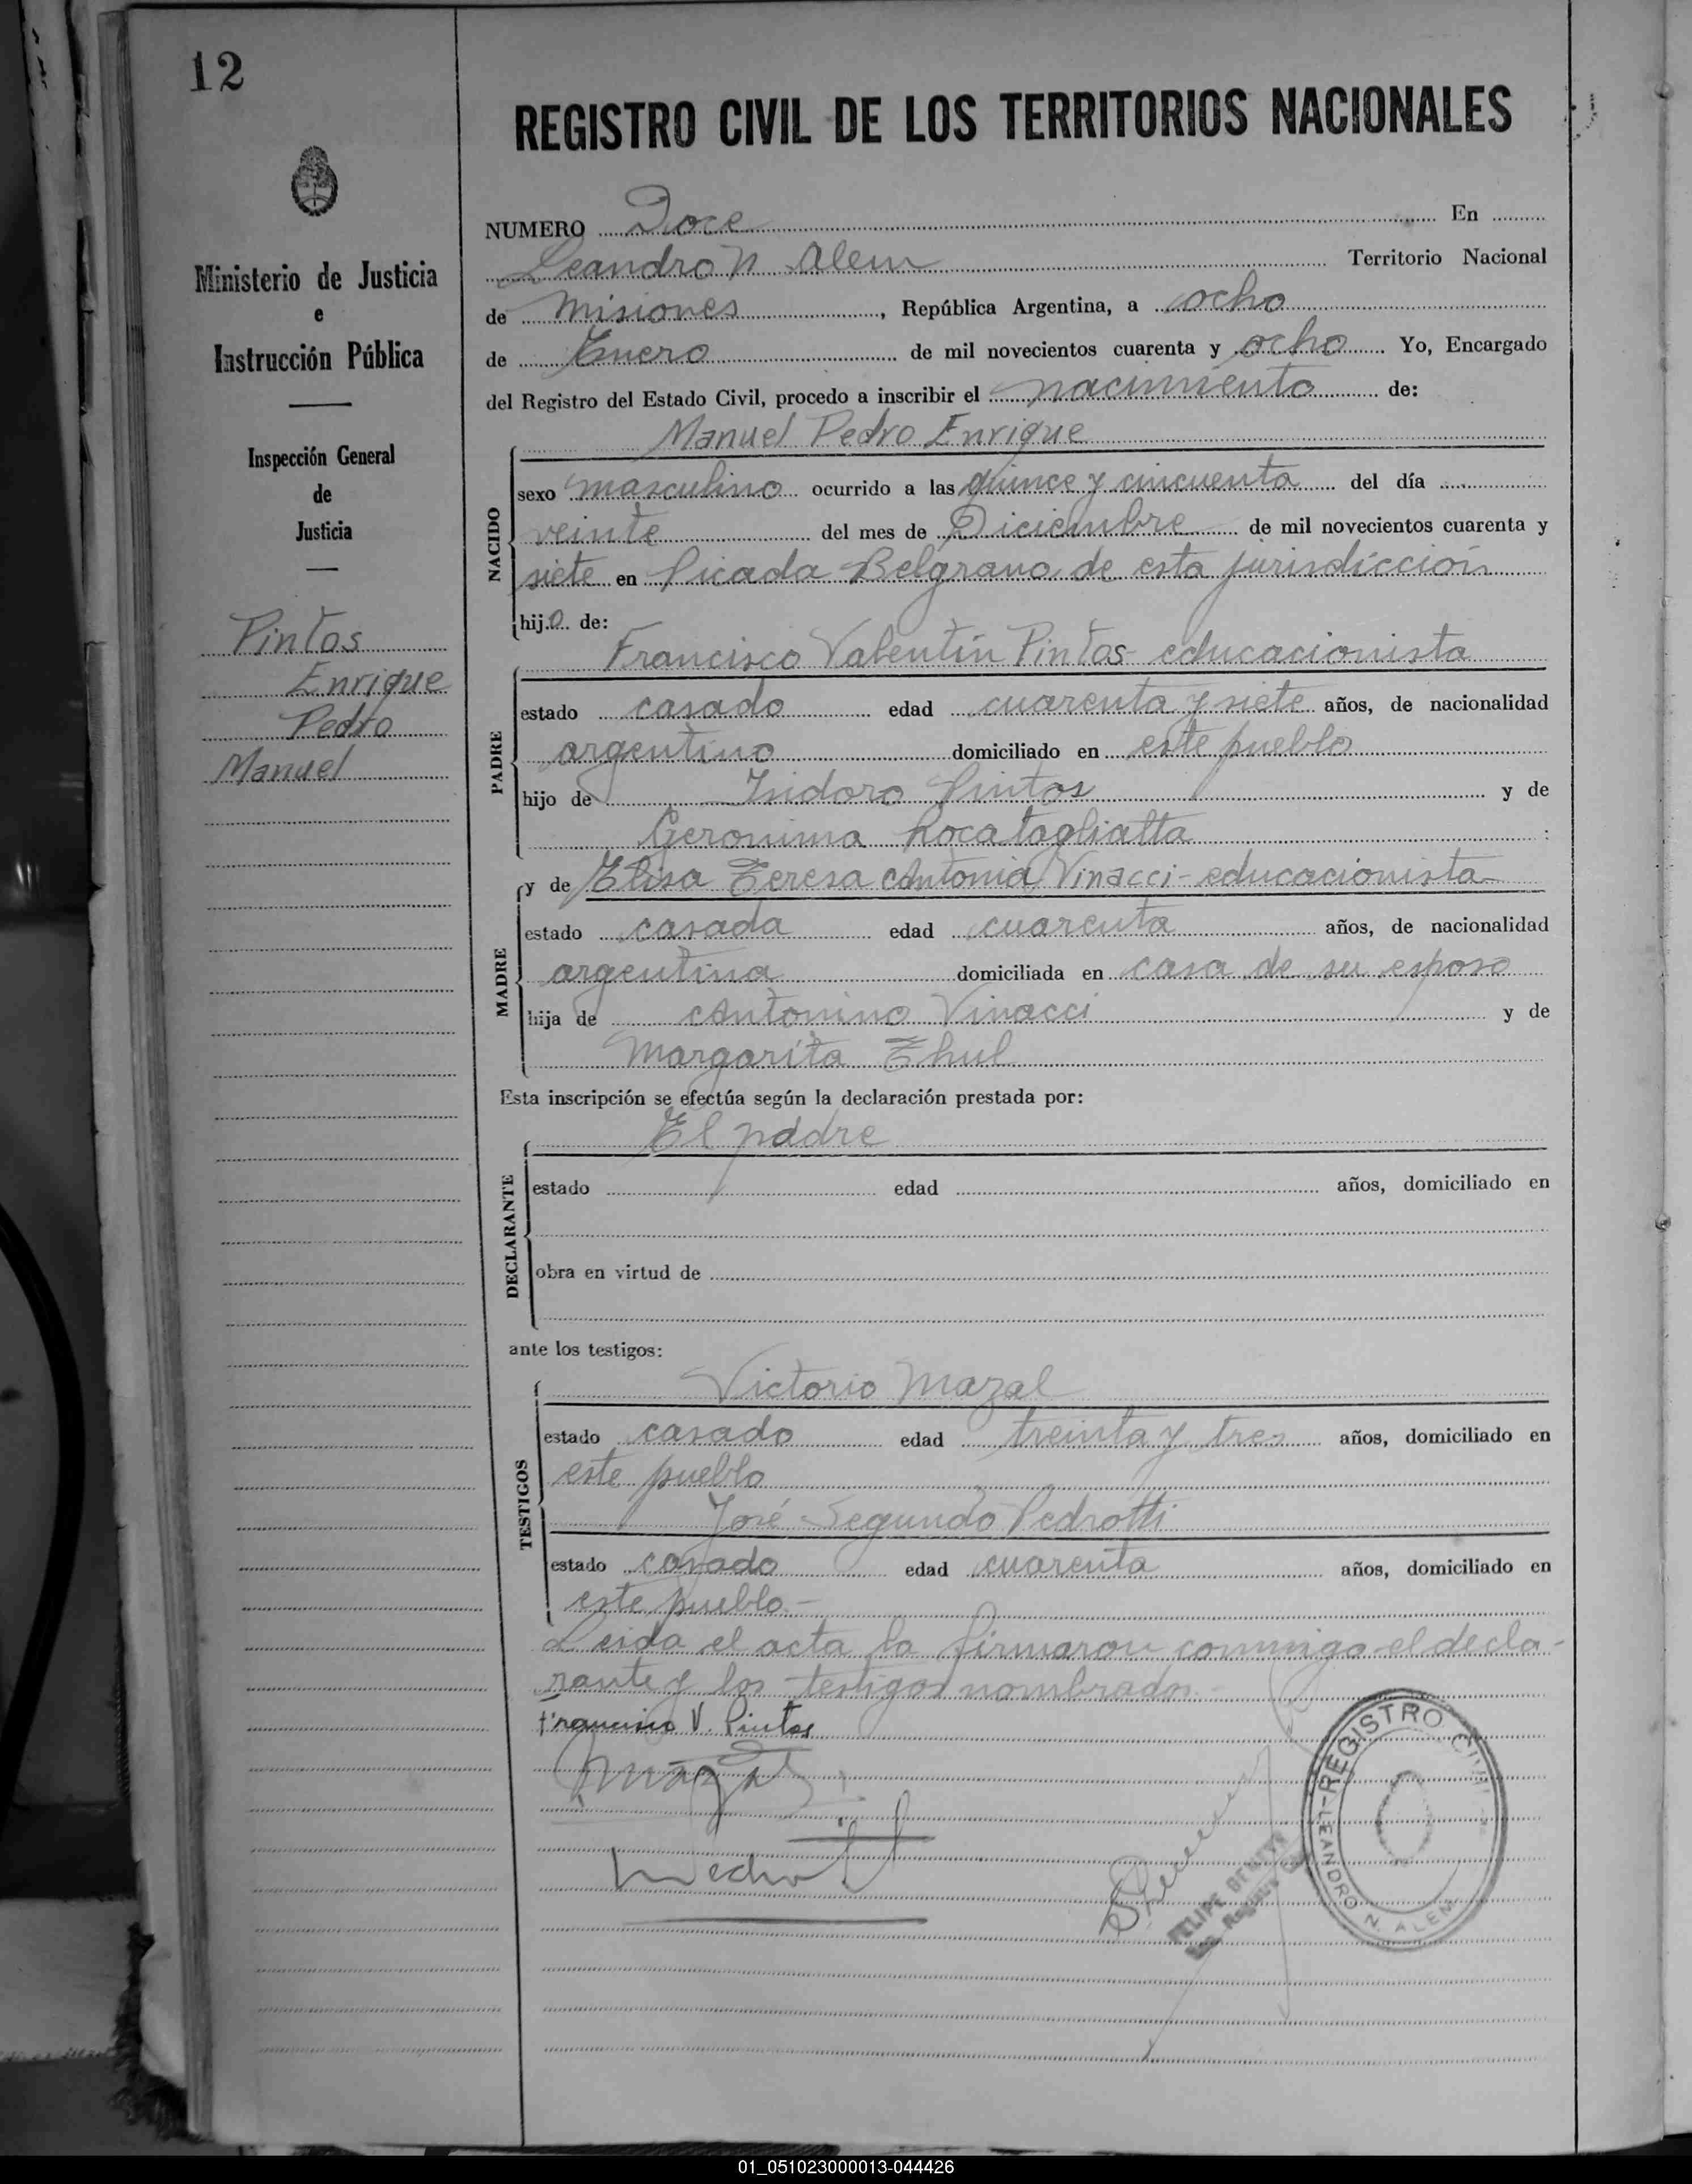 12
Ministerio de Justicia
e
Instrucción Pública
Inspección General
de
Justicia
Pintos
Enrique
Pedro
Manuel
REGISTRO CIVIL DE LOS TERRITORIOS NACIONALES
NUMERO Doce En
Leandro N. Alem Territorio Nacional
de Misiones, República Argentina, a ocho
de Enero de mil novecientos cuarenta y ocho Yo, Encargado
del Registro del Estado Civil, procedo a inscribir el nacimiento de:
Manuel Pedro Enrique
NACIDO
sexo masculino ocurrido a las quince y cincuenta del día
veinte del mes de Diciembre de mil novecientos cuarenta y
siete en Picada Belgrano de esta jurisdicción
hijo de:
Francisco Valentín Pintos - educacionista
PADRE
estado casado edad cuarenta y siete años, de nacionalidad
argentino domiciliado en este pueblo
hijo de Isidoro Pintos y de
Geronima Rocatagliatta
y de Elisa Teresa Antonia Vinacci - educacionista
MADRE
estado casada edad cuarenta años, de nacionalidad
argentina domiciliada en casa de su esposo
hija de Antonino Vinacci y de
Margarita Thul
Esta inscripción se efectúa según la declaración prestada por:
El padre
DECLARANTE
estado edad años, domiciliado en
obra en virtud de
ante los testigos:
Victorio Mazal
TESTIGOS
estado casado edad treinta y tres años, domiciliado en
este pueblo
José Segundo Pedrotti
estado casado edad cuarenta años, domiciliado en
este pueblo.-
Leida el acta la firmaron conmigo el decla-
rante y los testigos nombrados.-
Francisco V. Pintos
REGISTRO CIVIL
LEANDRO N. ALEM
FELIPE BENITEZ
01_051023000013-044426